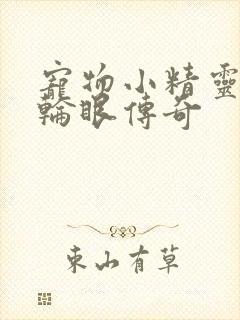 寵物小精靈
輪眼傳奇
東山有草